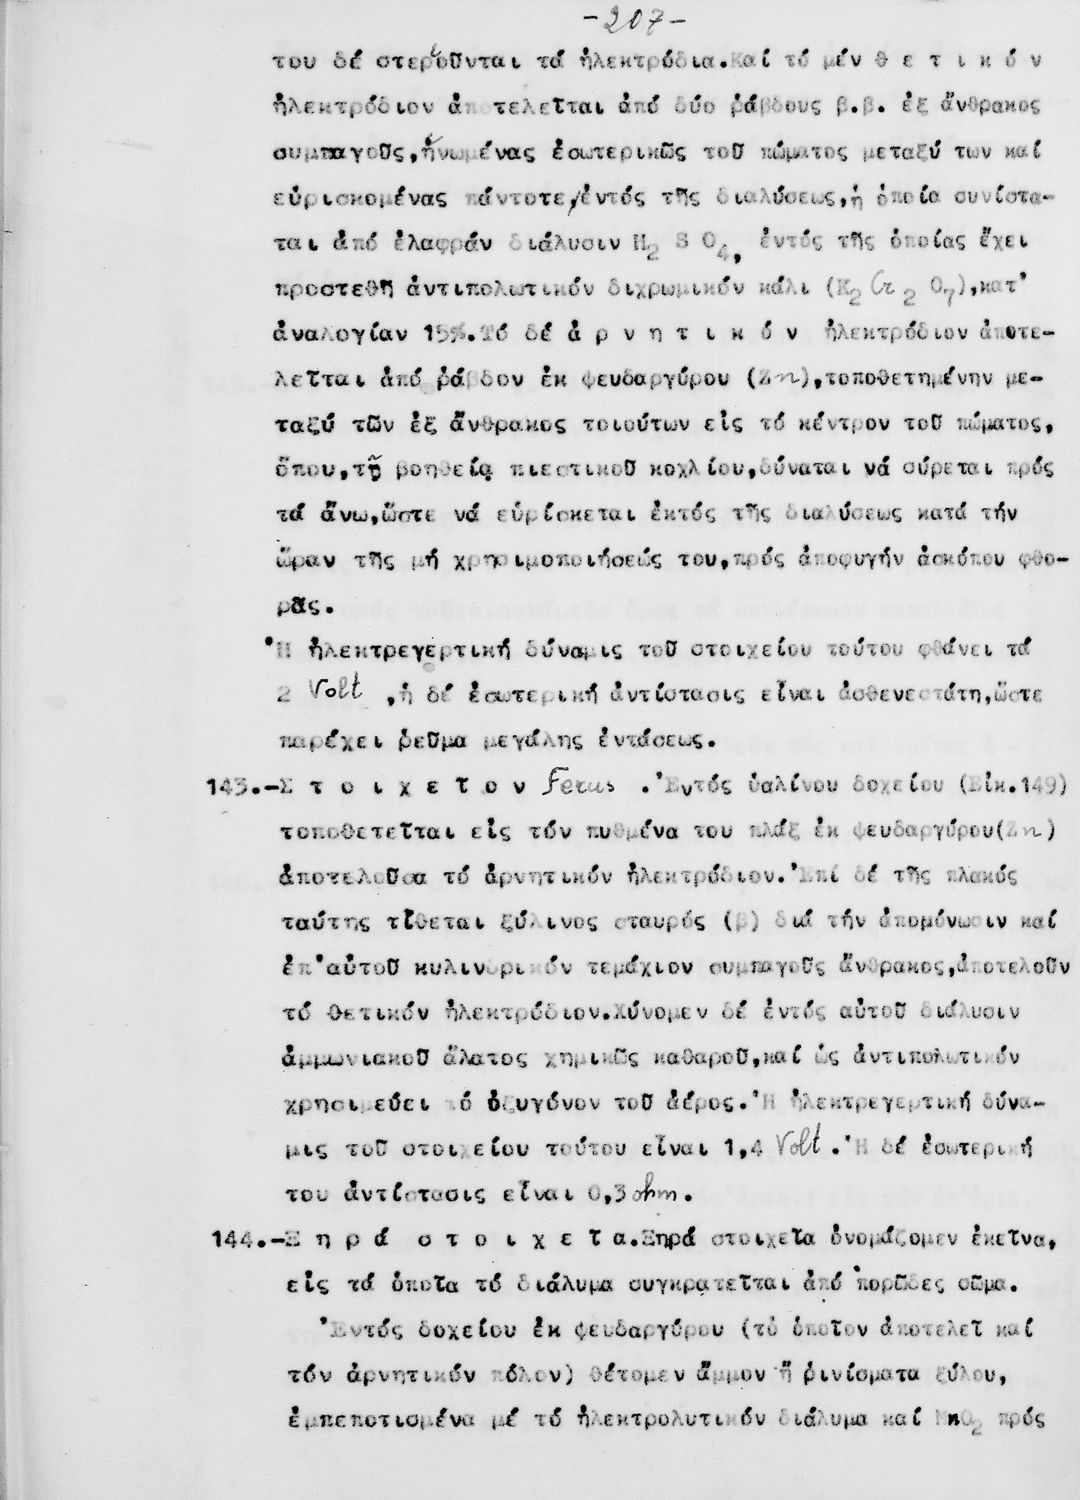 -207-
του δέ στερεοῦνται τά ἠλεκτρόδια.Καί τό μέν θ ε τ ι κ ό ν
ἠλεκτρόδιον ἀποτελεῖται ἀπό δύο ῥάβδους β.β. ἐξ ἄνθρακος
συμπαγοῦς,ἡνωμένας ἐσωτερικῶς τοῦ πώματος μεταξύ των καί
εὑρισκομένας πάντοτε/ἐντός τῆς διαλύσεως,ἡ ὁποία συνίστα-
ται ἀπό ἐλαφράν διάλυσιν H2 S O4, ἐντός τῆς ὁποίας ἔχει
προστεθῆ ἀντιπολωτικόν διχρωμικόν κάλι (K2 Cr 2 O7),κατ'
ἀναλογίαν 15%.Τό δέ ἀ ρ ν η τ ι κ ό ν ἠλεκτρόδιον ἀποτε-
λεῖται ἀπό ῥάβδον ἐκ ψευδαργύρου (Zn),τοποθετημένην με-
ταξύ τῶν ἐξ ἄνθρακος τοιούτων εἰς τό κέντρον τοῦ πώματος,
ὅπου,τῇ βοηθείᾳ πιεστικοῦ κοχλίου,δύναται νά σύρεται πρός
τά ἄνω,ὥστε νά εὑρίσκεται ἐκτός τῆς διαλύσεως κατά τήν
ὥραν τῆς μή χρησιμοποιήσεώς του,πρός ἀποφυγήν ἀσκόπου φθο-
ρᾶς.
Ἡ ἠλεκτρεγερτική δύναμις τοῦ στοιχείου τούτου φθάνει τά
2 Volt ,ἡ δέ ἐσωτερική ἀντίστασις εἶναι ἀσθενεστάτη,ὥστε
παρέχει ῥεῦμα μεγάλης ἐντάσεως.
143.-Σ τ ο ι χ ε ῖ ο ν Ferus . Ἐντός ὑαλίνου δοχείου (Εἰκ.149)
τοποθετεῖται εἰς τόν πυθμένα του πλάξ ἐκ ψευδαργύρου(Zn)
ἀποτελοῦσα τό ἀρνητικόν ἠλεκτρόδιον.Ἐπί δέ τῆς πλακός
ταύτης τίθεται ξύλινος σταυρός (β) διά τήν ἀπομόνωσιν καί
ἐπ'αὐτοῦ κυλινδρικόν τεμάχιον συμπαγοῦς ἄνθρακος,ἀποτελοῦν
τό θετικόν ἠλεκτρόδιον.Χύνομεν δέ ἐντός αὐτοῦ διάλυσιν
ἀμμωνιακοῦ ἅλατος χημικῶς καθαροῦ,καί ὡς ἀντιπολωτικόν
χρησιμεύει τό ὀξυγόνον τοῦ ἀέρος.Ἡ ἠλεκτρεγερτική δύνα-
μις τοῦ στοιχείου τούτου εἶναι 1,4 Volt .Ἡ δέ ἐσωτερική
του ἀντίστασις εἶναι 0,3 ohm.
144.-Ξ η ρ ά σ τ ο ι χ ε ῖ α.Ξηρά στοιχεῖα ὀνομάζομεν ἐκεῖνα,
εἰς τά ὁποῖα τό διάλυμα συγκρατεῖται ἀπό πορῶδες σῶμα.
Ἐντός δοχείου ἐκ ψευδαργύρου (τό ὁποῖον ἀποτελεῖ καί
τόν ἀρνητικόν πόλον) θέτομεν ἄμμον ἤ ῥινίσματα ξύλου,
ἐμπεποτισμένα μέ τό ἠλεκτρολυτικόν διάλυμα καί MnO2 πρός